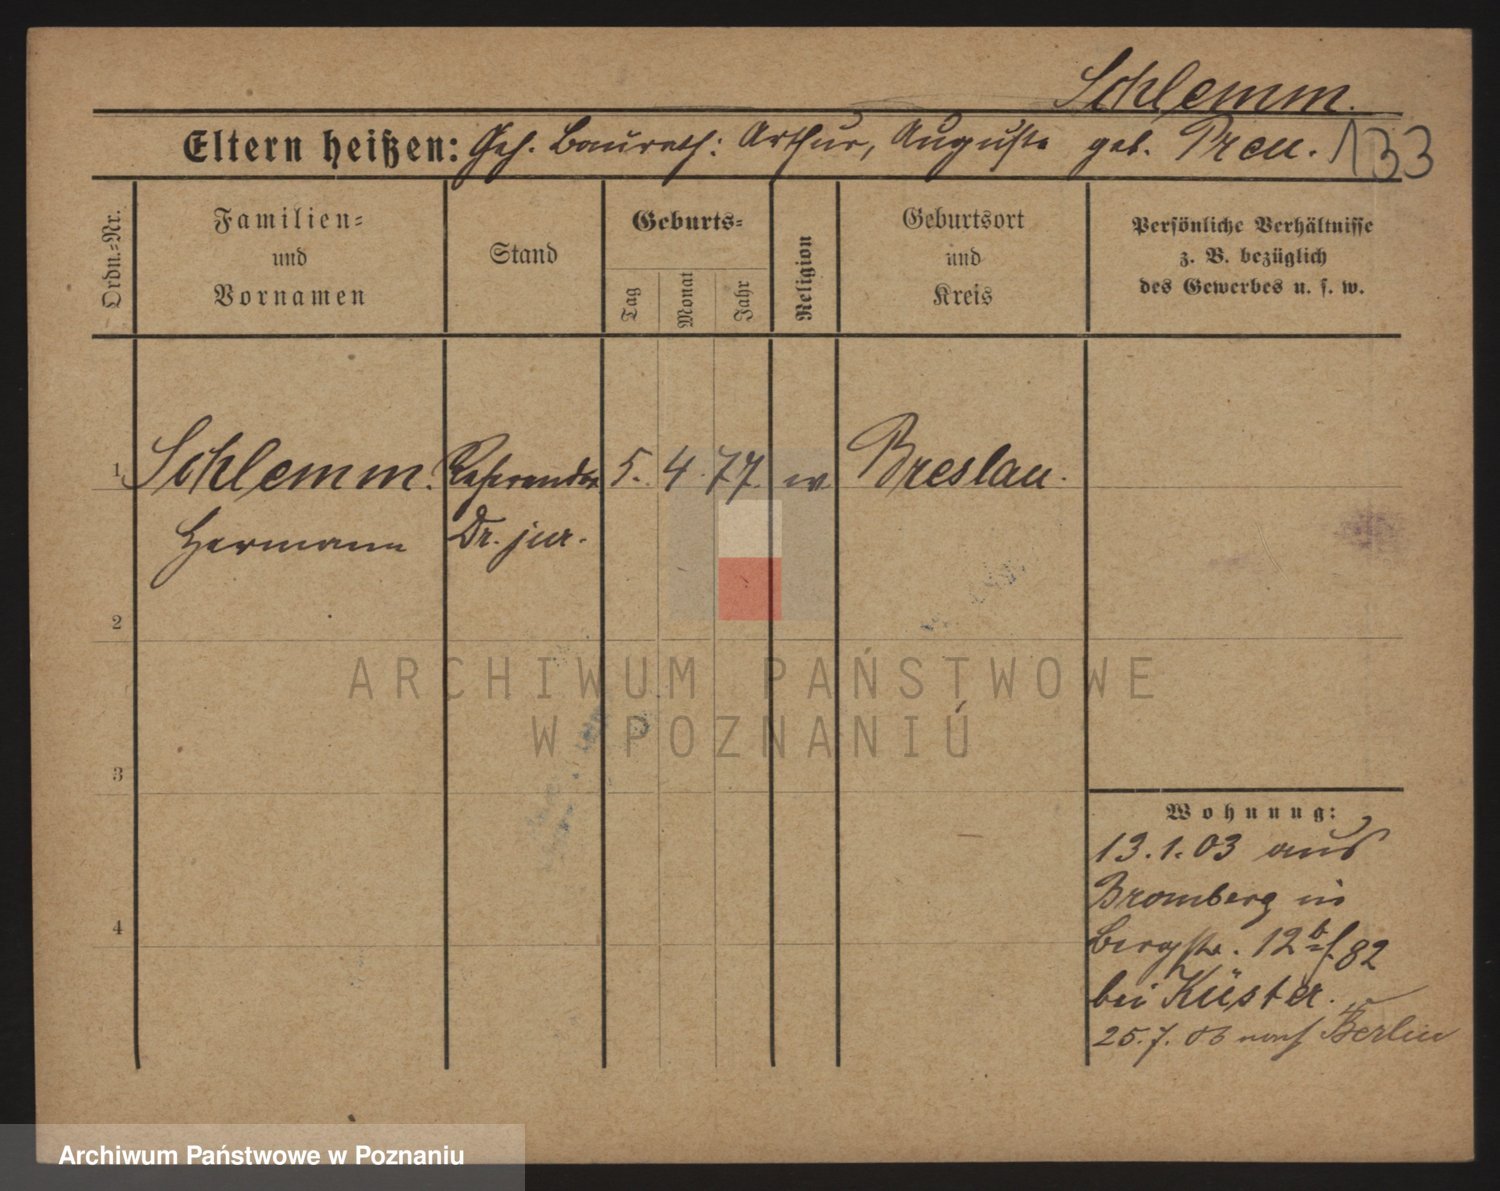 Schlemm.
Eltern heißen: Geh. Baurath: Arthur, Auguste geb. Preu.
133
Ordn.-Nr.
Familien-
und
Vornamen
Stand
Geburts-
Tag
Monat
Jahr
Religion
Geburtsort
und
Kreis
Persönliche Verhältnisse
z. B. bezüglich
des Gewerbes u. s. w.
1 Schlemm. Referendar 5. 4. 77. ev Breslau.
Hermann Dr. jur.
2
ARCHIWUM PAŃSTWOWE
W POZNANIU
3
Wohnung:
13.1.03 aus
Bromberg in
4
Bergstr. 12b 82
bei Küster.
25.7.06 nach Berlin
Archiwum Państwowe w Poznaniu